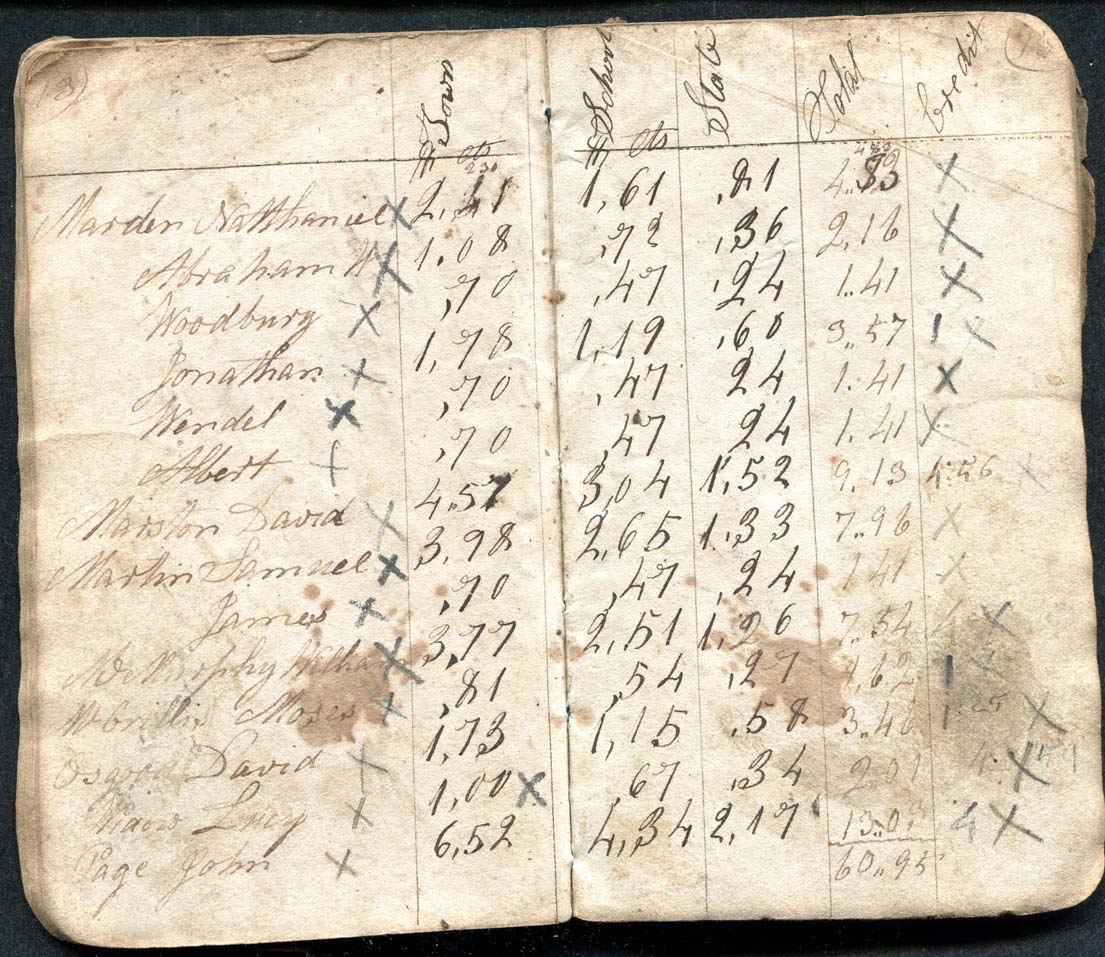 Town School State Total Credit
$ cts $ cts
Marden Natthaniel X 2,41 1,61 ,81 4.83 X
Abraham W X 1,08 ,72 ,36 2,16 X
Woodbury X ,70 ,47 ,24 1.41 X
Jonathan X 1,78 1,19 ,60 3.57 1 X
Wendel X ,70 ,47 24 1.41 X
Albert X ,70 ,47 24 1.41 X
Marston David X 4.57 3,04 1,52 9.13 4.56 X
Martin Samuel X 3,98 2,65 1.33 7.96 X
James X ,70 ,47 ,24 1.41 X
3,77 2,51 1,26 7.54 4 X
Moses X ,81 ,54 ,27 1,62 1 X
Osgood David X 1,73 1,15 ,58 3.46 1.25 X
Widow Lucy X 1,00 X ,67 ,34 2.01 X
Page John X 6,52 4,34 2,17 X
60.95